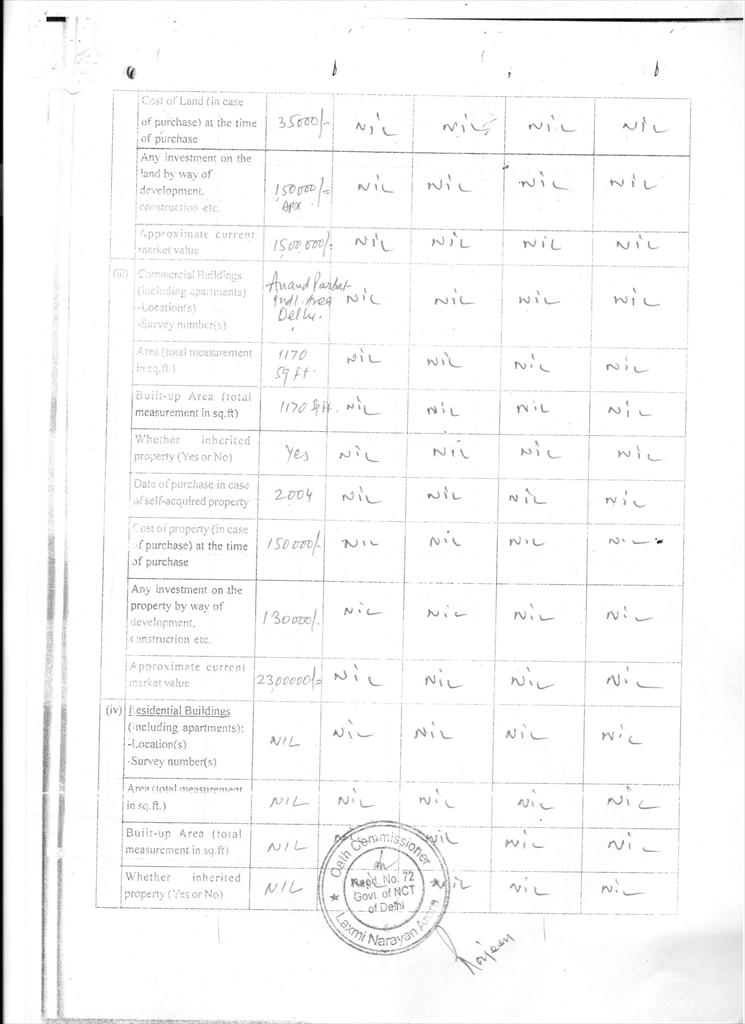 Cost of Land (in case
of purchase) at the time
of purchase
35000/- NiL NiL NiL NiL
Any investment on the
land by way of
development,
construction etc.
150000/=
Apx
NiL NiL NiL NiL
Approximate current
market value
1500000/= NiL NiL NiL NiL
(iii) Commercial Buildings
(including apartments)
-Location(s)
-Survey number(s)
Anand Parbat
Indl. Area
Delhi.
NiL NiL NiL NiL
Area (total measurement
in sq.ft.)
1170
Sq ft.
NiL NiL NiL NiL
Built-up Area (total
measurement in sq.ft)
1170 Sq ft. NiL NiL NiL NiL
Whether inherited
property (Yes or No)
Yes NiL NiL NiL NiL
Date of purchase in case
of self-acquired property
2004 NiL NiL NiL NiL
Cost of property (in case
of purchase) at the time
of purchase
150000/- NiL NiL NiL NiL
Any investment on the
property by way of
development,
construction etc.
130000/- NiL NiL NiL NiL
Approximate current
market value
2300000/= NiL NiL NiL NiL
(iv) Residential Buildings
(including apartments):
-Location(s)
-Survey number(s)
NIL NiL NiL NiL NiL
Area (total measurement
in sq.ft.)
NIL NiL NiL NiL NiL
Built-up Area (total
measurement in sq.ft)
NIL NiL NiL NiL NiL
Whether inherited
property (Yes or No)
NIL NiL NiL NiL
Oath Commissioner
Regd. No. 72
Govt. of NCT
of Delhi
Laxmi Narayan Arora